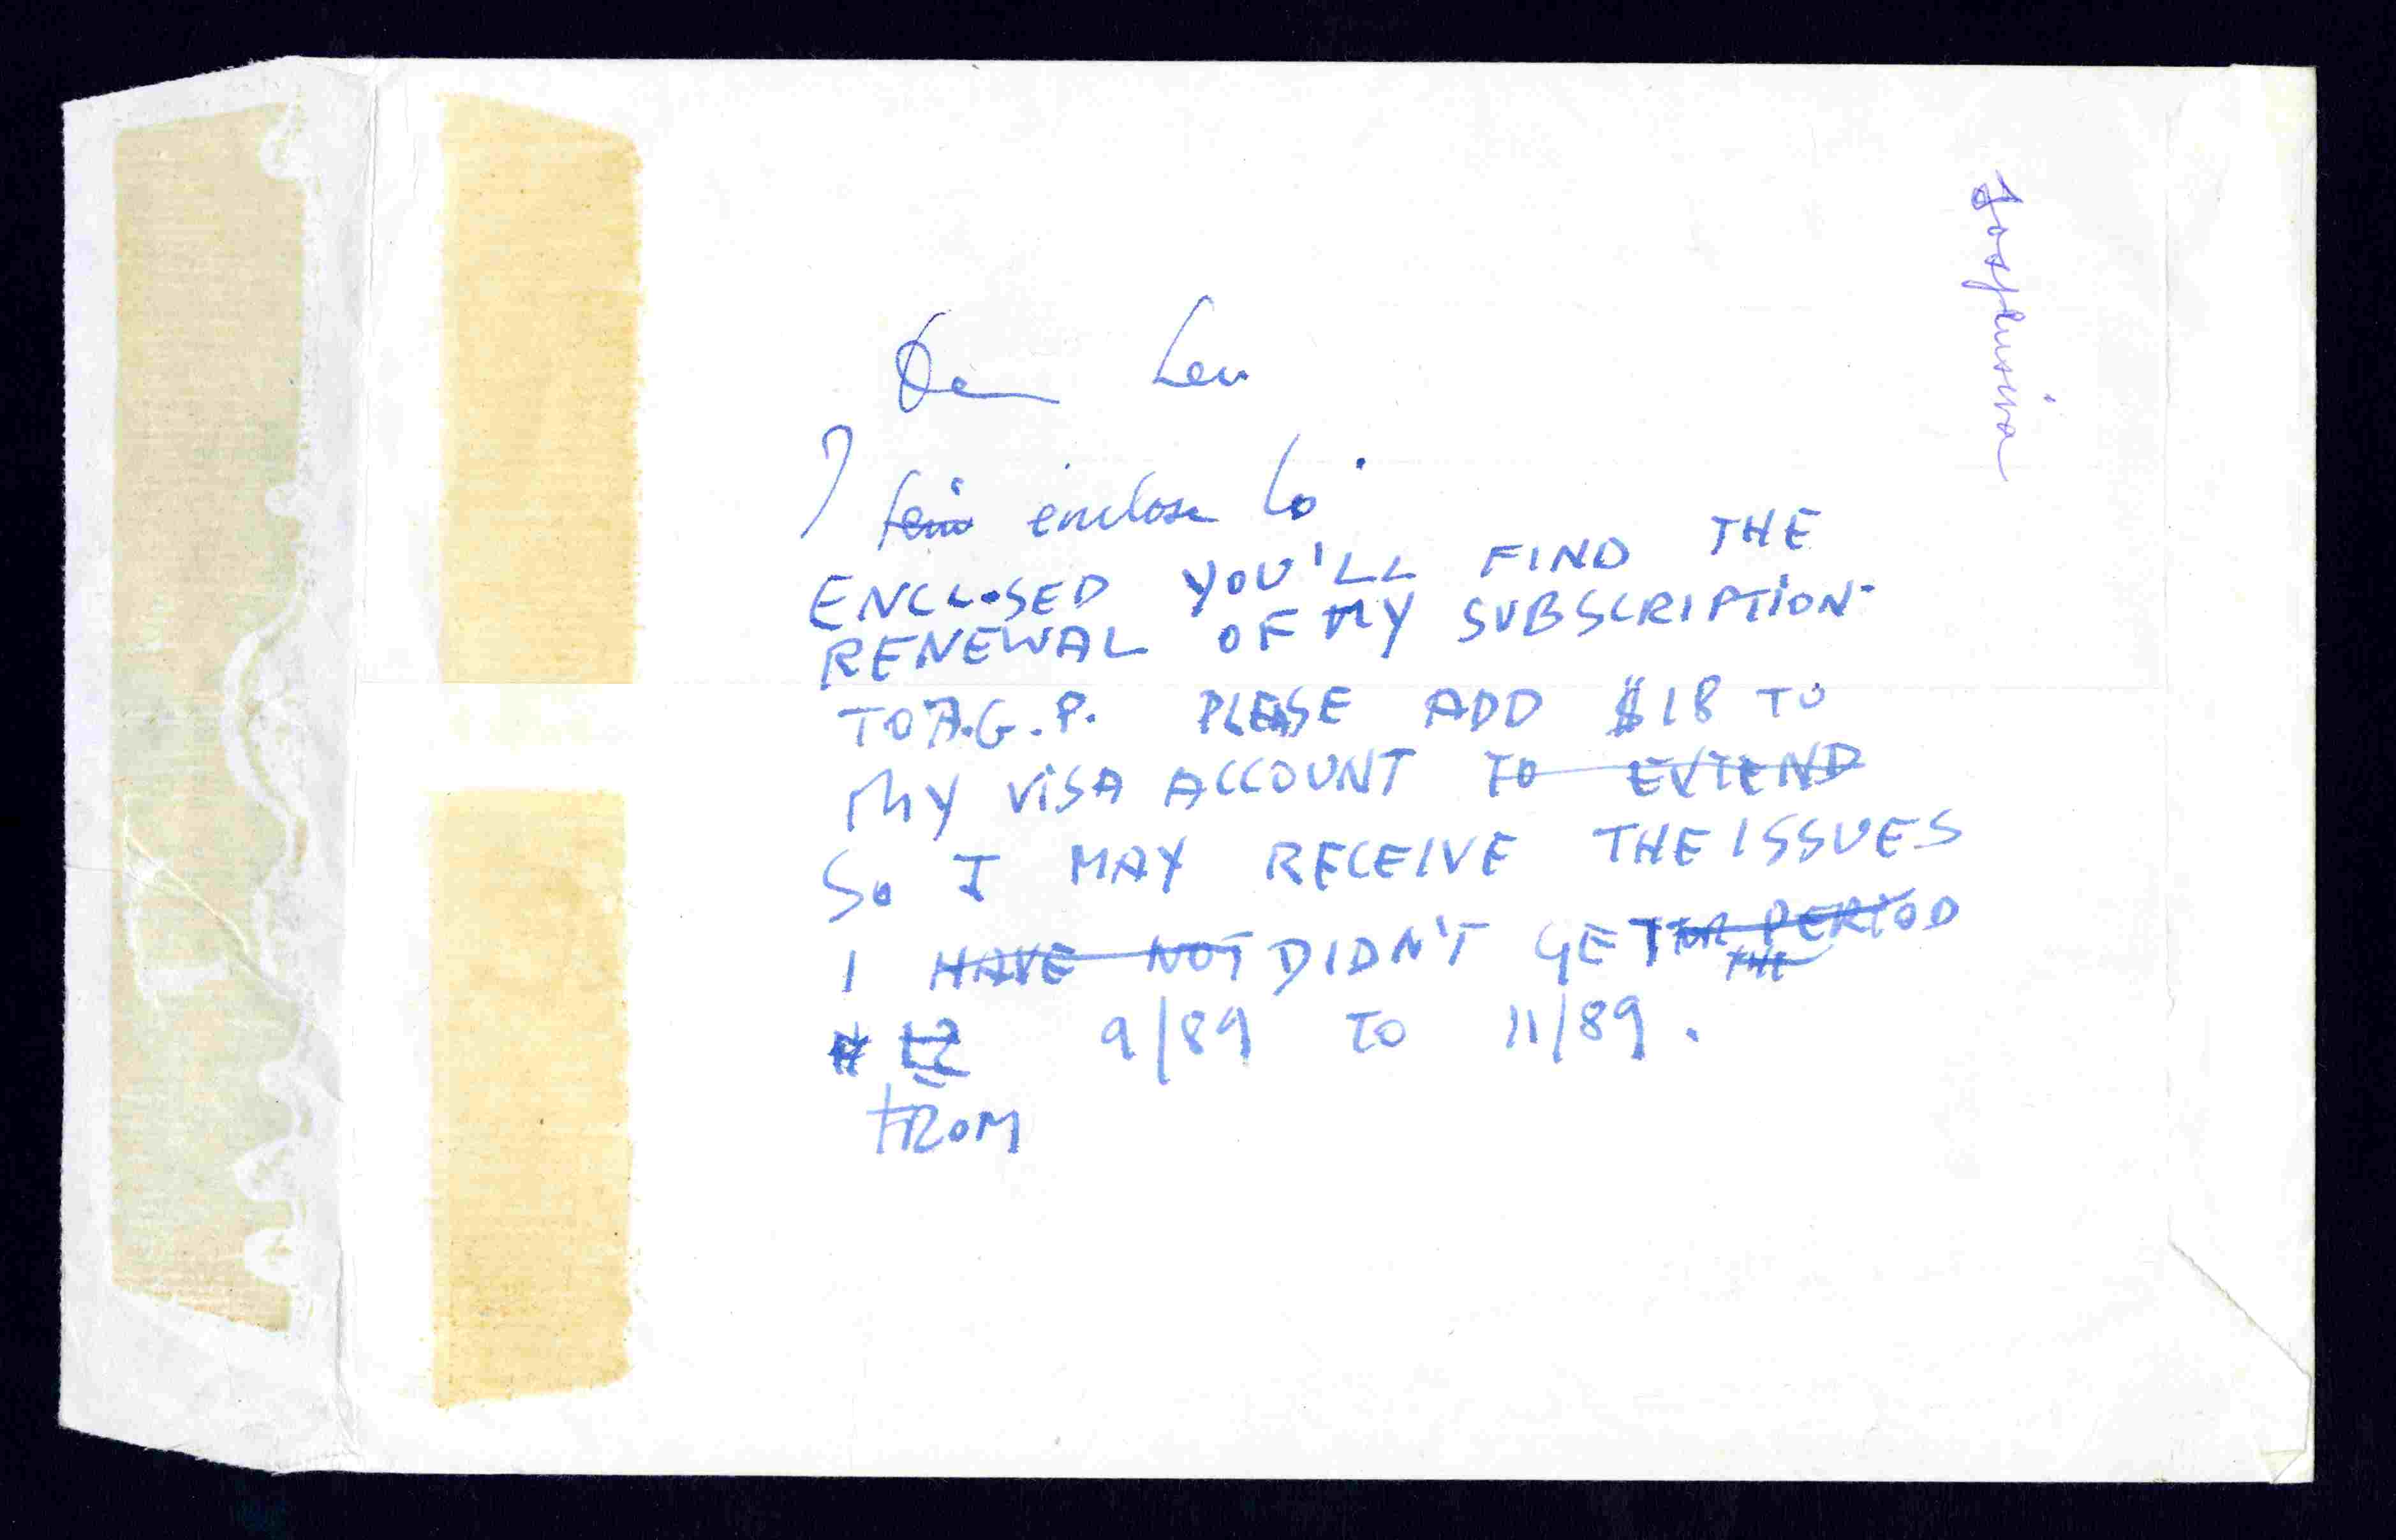 I enclose
ENCLOSED YOU'LL FIND THE
RENEWAL OF MY SUBSCRIPTION
TO A.G.P. PLEASE ADD $18 TO
MY VISA ACCOUNT TO EXTEND
SO I MAY RECEIVE THE ISSUES
I HAVE NOT DIDN'T GET FOR PERIOD
THE
9/89 TO 11/89.
FROM